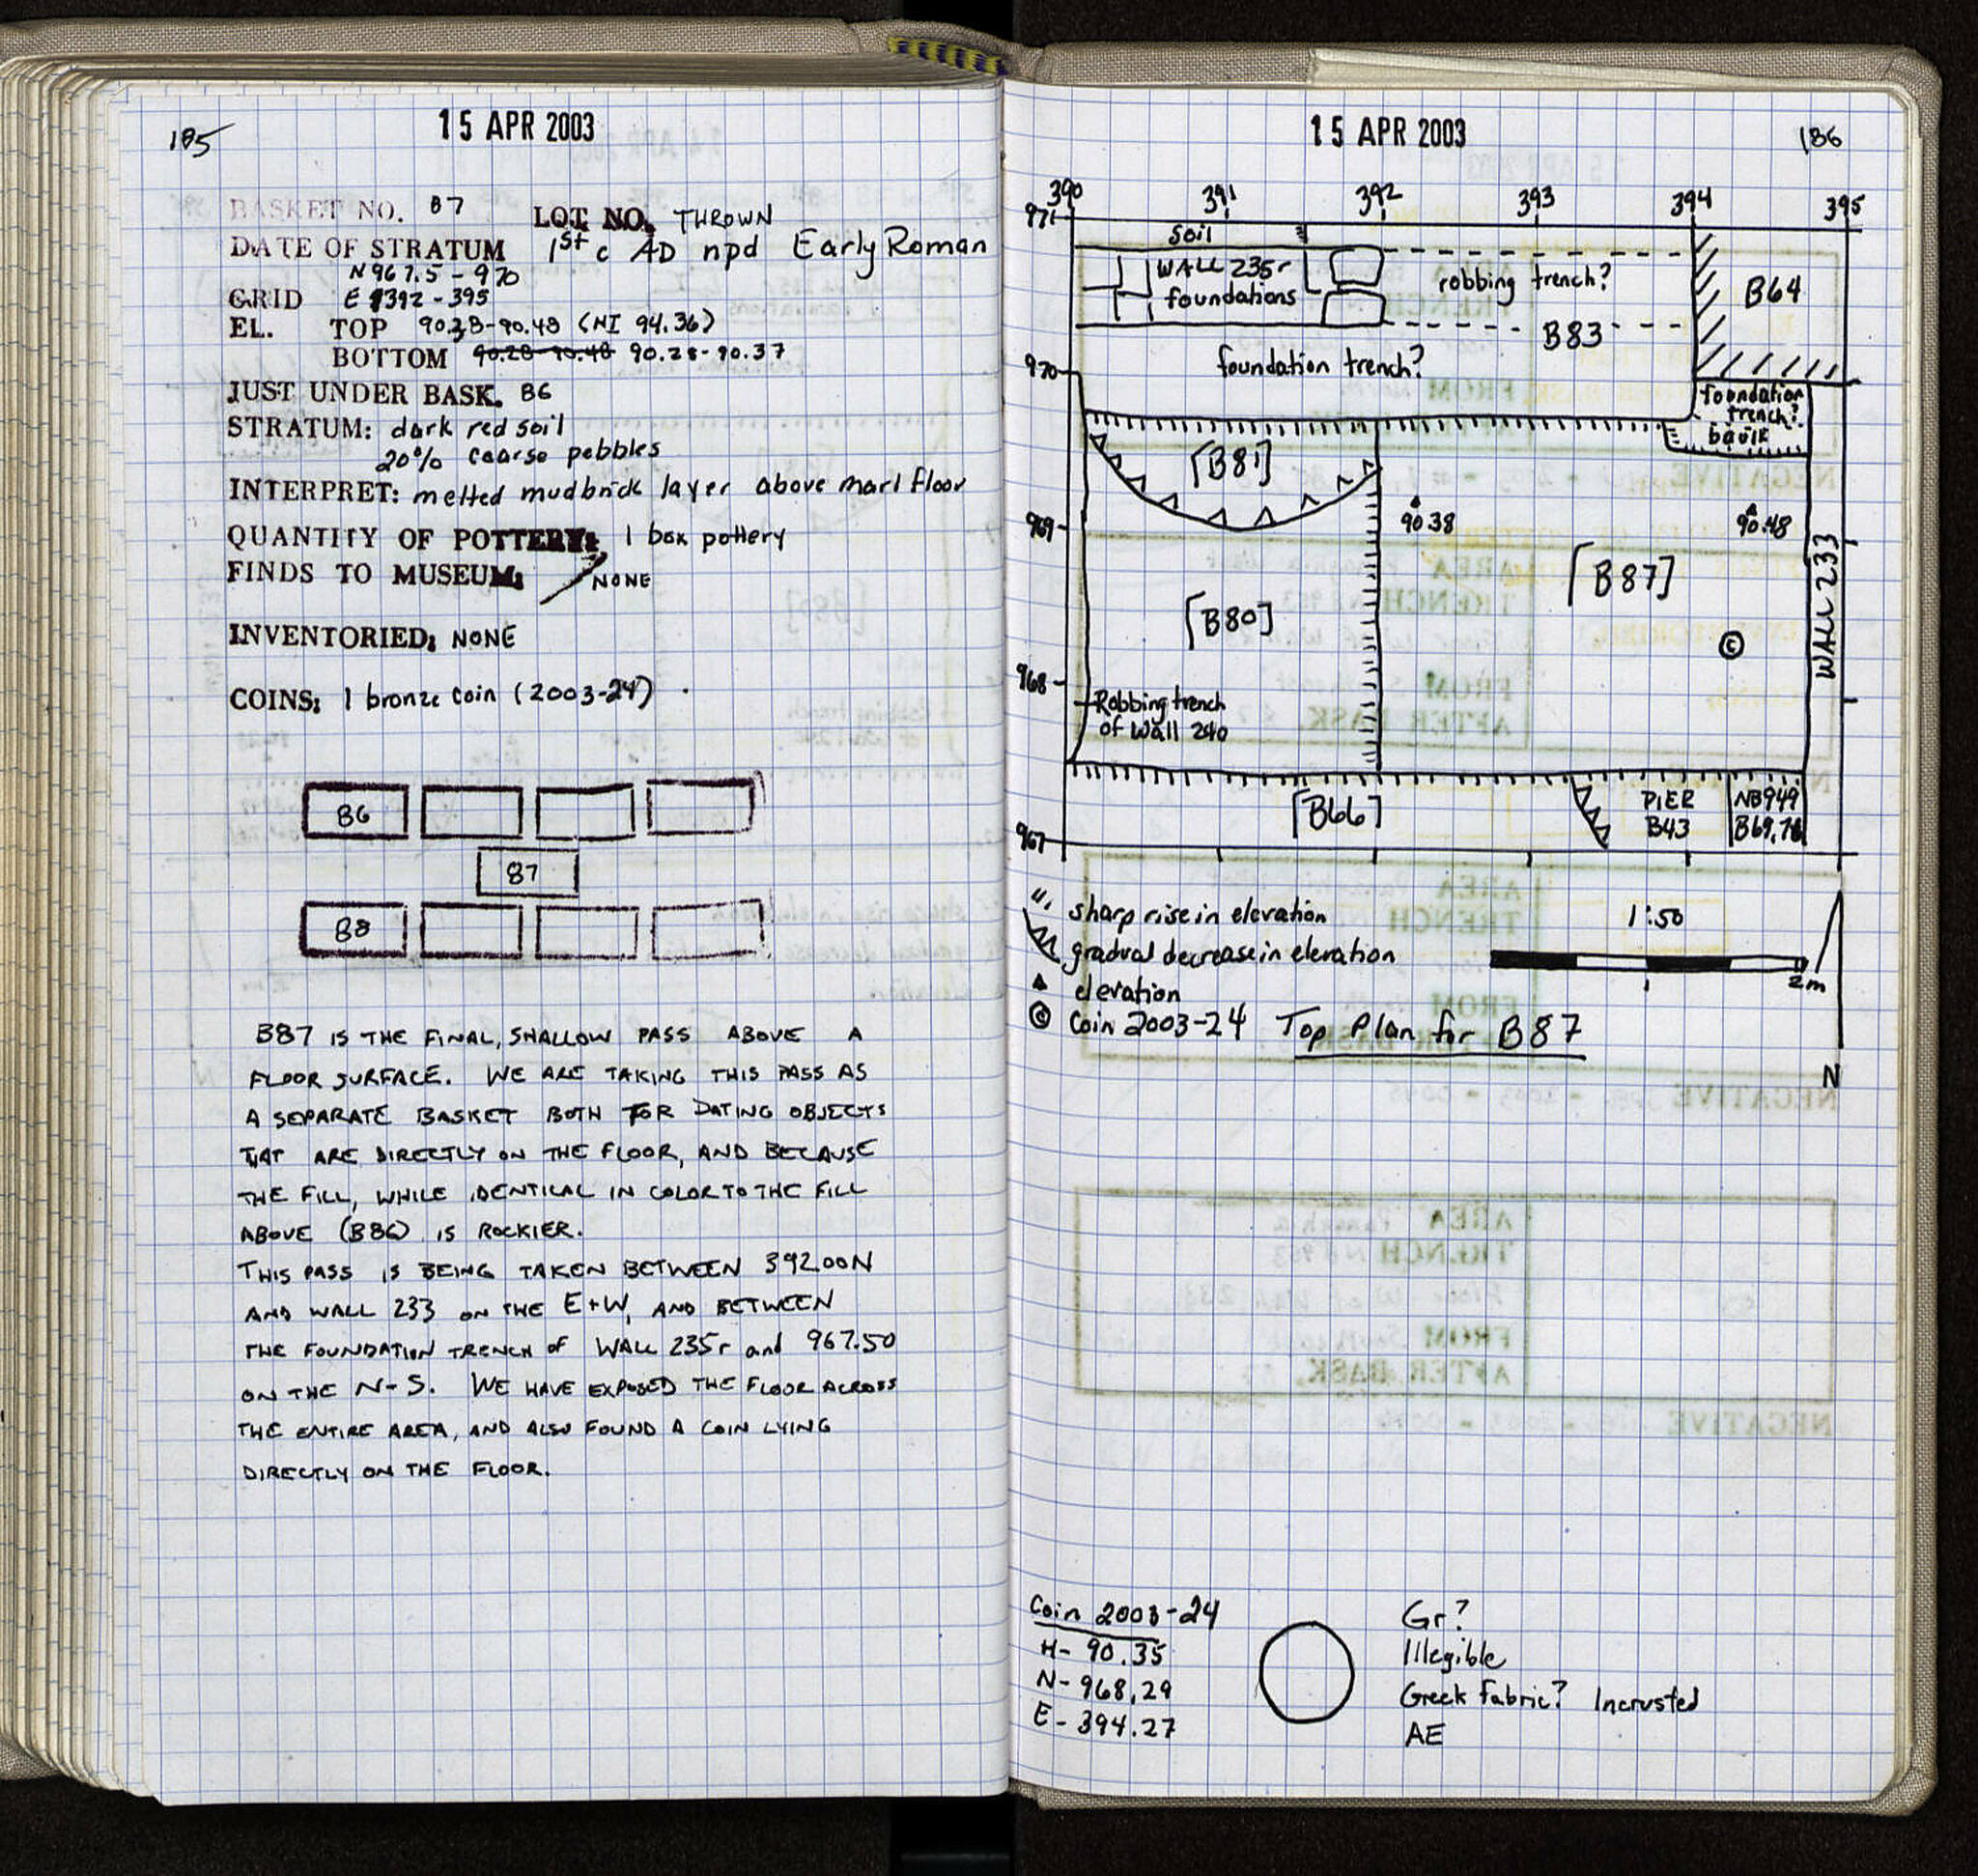 185
15 APR 2003
BASKET NO. 87 LOT NO. THROWN
DATE OF STRATUM 1st c AD npd Early Roman
N967.5-970
GRID E 392-395
EL. TOP 90.38-90.48 (HI 94.36)
BOTTOM 90.28-90.48 90.28-90.37
JUST UNDER BASK. 86
STRATUM: dark red soil
20% coarse pebbles
INTERPRET: melted mudbrick layer above marl floor
QUANTITY OF POTTERY: 1 box pottery
FINDS TO MUSEUM: NONE
INVENTORIED: NONE
COINS: 1 bronze coin (2003-24)
86
87
88
B87 IS THE FINAL, SHALLOW PASS ABOVE A
FLOOR SURFACE. WE ARE TAKING THIS PASS AS
A SEPARATE BASKET BOTH FOR DATING OBJECTS
TAT ARE DIRECTLY ON THE FLOOR, AND BECAUSE
THE FILL, WHILE IDENTICAL IN COLOR TO THE FILL
ABOVE (B86) IS ROCKIER.
THIS PASS IS BEING TAKEN BETWEEN 392.00N
AND WALL 233 ON THE E+W, AND BETWEEN
THE FOUNDATION TRENCH of WALL 235r and 967.50
ON THE N-S. WE HAVE EXPOSED THE FLOOR ACROSS
THE ENTIRE AREA, AND ALSO FOUND A COIN LYING
DIRECTLY ON THE FLOOR.
15 APR 2003
186
390 391 392 393 394 395
971
soil
WALL 235r
foundations
robbing trench?
B64
B83
970
foundation trench?
foundation
trench?
baulk
[B81]
969
90.38
90.48
[B87]
[B80]
WALL 233
©
968
Robbing trench
of Wall 240
[B66]
PIER
B43
NB949
B69,78
967
sharp rise in elevation
1:50
gradual decrease in elevation
2m
elevation
© Coin 2003-24 Top Plan for B87
N
Coin 2003-24
H- 90.35
N- 968.29
E- 394.27
Gr?
Illegible
Greek fabric? Incrusted
AE